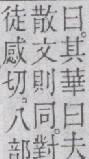 曰其華曰夫
散文則同對
徒感切。八部